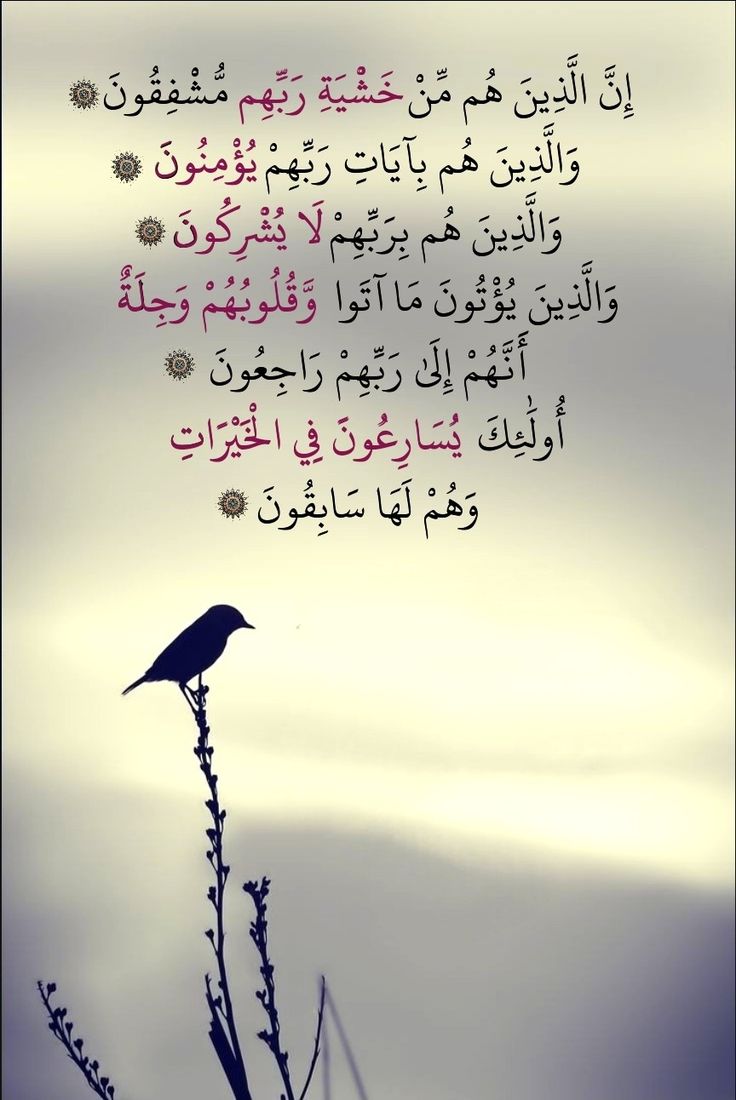 إِنَّ الَّذِينَ هُم مِّنْ خَشْيَةِ رَبِّهِم مُّشْفِقُونَ
وَالَّذِينَ هُم بِآيَاتِ رَبِّهِمْ يُؤْمِنُونَ
وَالَّذِينَ هُم بِرَبِّهِمْ لَا يُشْرِكُونَ
وَالَّذِينَ يُؤْتُونَ مَا آتَوا وَّقُلُوبُهُمْ وَجِلَةٌ
أَنَّهُمْ إِلَىٰ رَبِّهِمْ رَاجِعُونَ
أُولَٰئِكَ يُسَارِعُونَ فِي الْخَيْرَاتِ
وَهُمْ لَهَا سَابِقُونَ